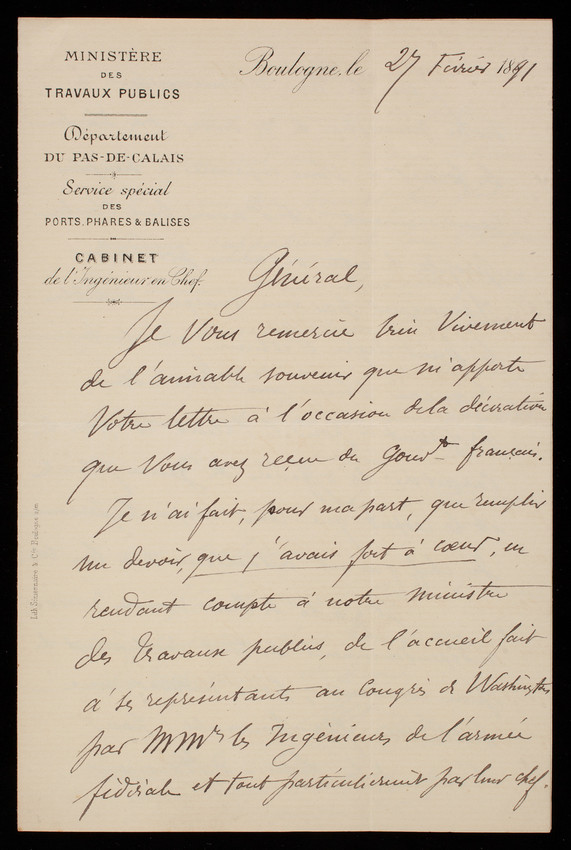 MINISTÈRE
DES
TRAVAUX PUBLICS
Département
DU PAS-DE-CALAIS
Service spécial
DES
PORTS, PHARES & BALISES
CABINET
de l'Ingénieur en Chef
Boulogne, le 27 Février 1891
Général,
Je Vous remercie bien Vivement
de l'aimable souvenir que m'apporte
Votre lettre à l'occasion de la décoration
que Vous avez reçue du Gouvt français.
Je n'ai fait, pour ma part, que remplir
un devoir, que j'avais fort à cœur, en
rendant compte à notre ministre
des Travaux publics, de l'accueil fait
à ses représentants au Congrès de Washington
par MMrs les Ingénieurs de l'armée
fédérale et tout particulièrement par leur chef.
Lith. & Cie Boulogne s/m